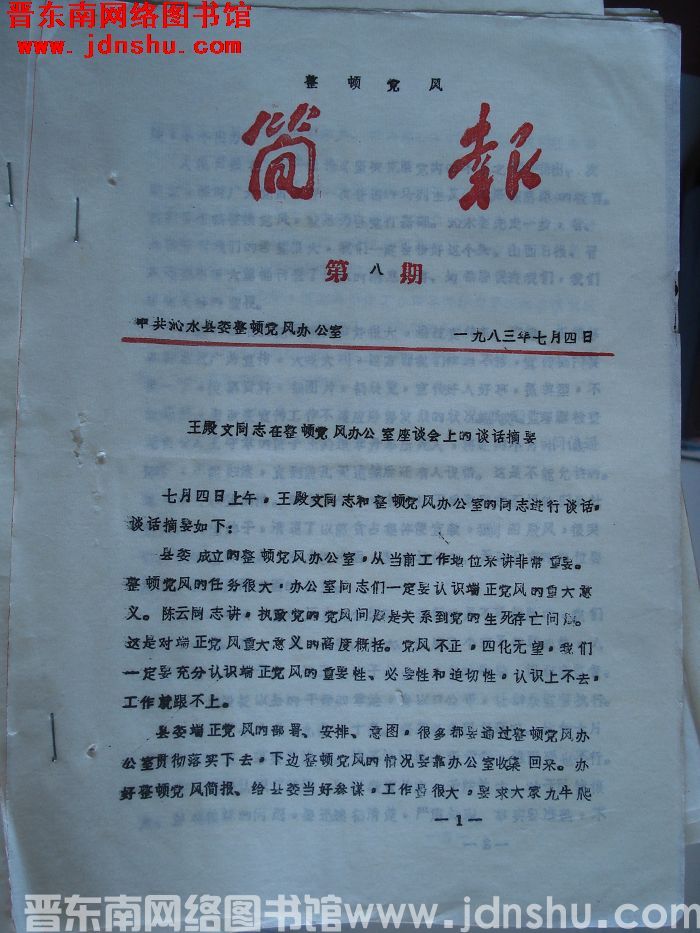 晋东南网络图书馆
www.jdnshu.com
整顿党风
简报
第八期
中共沁水县委整顿党风办公室 一九八三年七月四日
王殿文同志在整顿党风办公室座谈会上的谈话摘要
七月四日上午，王殿文同志和整顿党风办公室的同志进行谈话，
谈话摘要如下：
县委成立的整顿党风办公室，从当前工作地位来讲非常重要。
整顿党风的任务很大，办公室同志们一定要认识端正党风的重大意
义。陈云同志讲，执政党的党风问题是关系到党的生死存亡问题。
这是对端正党风重大意义的高度概括。党风不正，四化无望，我们
一定要充分认识端正党风的重要性、必要性和迫切性，认识上不去，
工作就跟不上。
县委端正党风的部署、安排、意图，很多都要通过整顿党风办
公室贯彻落实下去，下边整顿党风的情况要靠办公室收集回来。办
好整顿党风简报、给县委当好参谋，工作量很大，要求大家九牛爬
—1—
晋东南网络图书馆 www.jdnshu.com